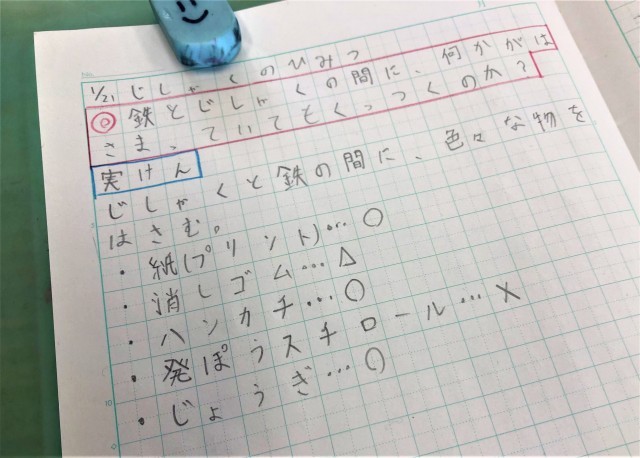 1/21 じしゃくのひみつ
◎ 鉄とじしゃくの間に、何かがは
さまっていてもくっつくのか?
実けん
じしゃくと鉄の間に、色々な物を
はさむ。
・紙(プリント)…○
・消しゴム…△
・ハンカチ…○
・発ぽうスチロール…×
・じょうぎ…○